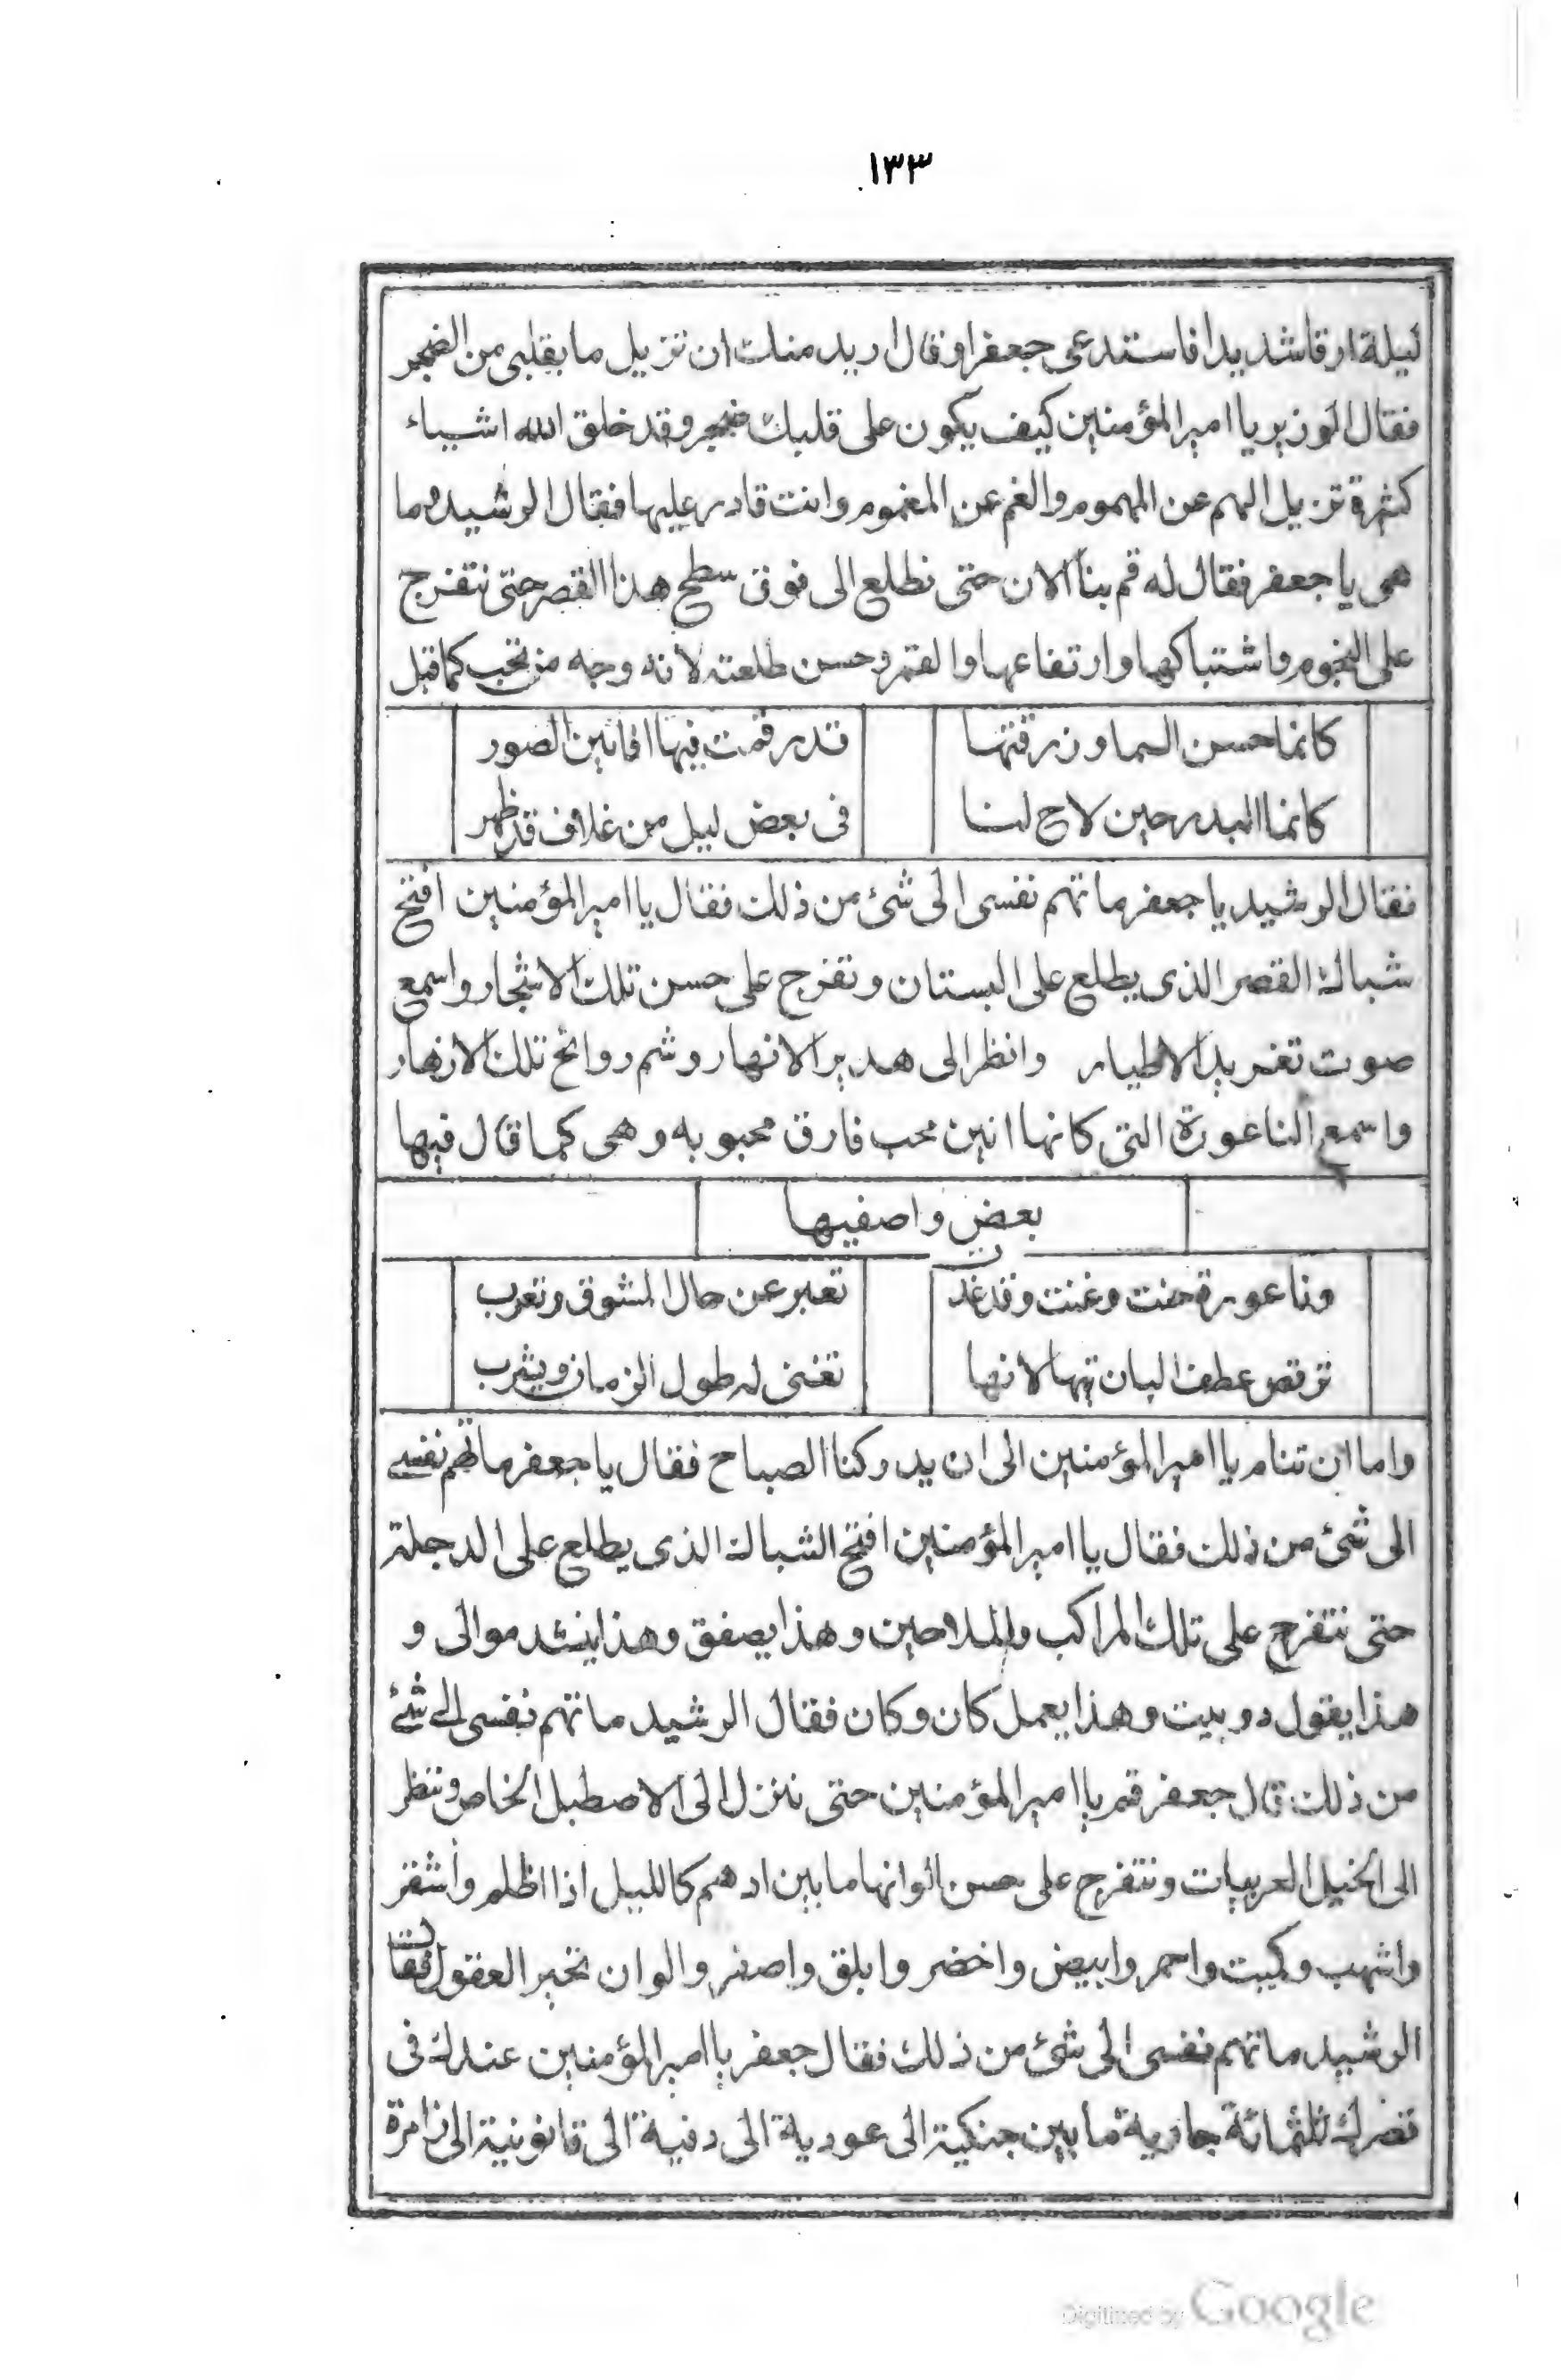 ١٣٣
ليلة ارقا شديدا فاستدعى جعفرا وقال اريد منك ان تزيل ما بقلبى من الضجر
فقال الوزير يا امير المؤمنين كيف يكون على قلبك ضجر وقد خلق الله اشياء
كثيرة تزيل الهم عن المهموم والغم عن المغموم وانت قادر عليها فقال الرشيد وما
هى يا جعفر فقال له قم بنا الان حتى نطلع الى فوق سطح هذا القصر حتى نتفرج
على النجوم واشتباكها وارتفاعها والقمر وحسن طلعته لانه وجه من تحب كما قيل
كانما حسن السما وزرقتها قد رقمت فيها افانين الصور
كانما البدر حين لاح لنا فى بعض ليل من غلاف قد ظهر
فقال الرشيد يا جعفر ما تهم نفسى الى شئ من ذلك فقال يا امير المؤمنين افتح
شباك القصر الذى يطلع على البستان وتفرج على حسن تلك الاشجار واسمع
صوت تغريد الاطيار وانظر الى هدير الانهار وشم روائح تلك الازهار
واسمع الناعورة التى كانها انين محب فارق محبوبه وهى كما قال فيها
بعض واصفيها
وناعورة حنت وغنت وقد غدت تعبر عن حال المشوق وتعرب
ترقص عطف البان تيها لانها تغنى له طول الزمان ويشرب
واما ان تنام يا امير المؤمنين الى ان يدركنا الصباح فقال يا جعفر ما تهم نفسے
الى شئ من ذلك فقال يا امير المؤمنين افتح الشباك الذى يطلع على الدجلة
حتى نتفرج على تلك المراكب والملاحين وهذا يصفق وهذا ينشد موالى و
هذا يقول دوبيت وهذا يعمل كان وكان فقال الرشيد ما تهم نفسى الے شئ
من ذلك قال جعفر قم يا امير المؤمنين حتى ننزل الى الاصطبل الخاص وننظر
الى الخيل العربيات ونتفرج على حسن الوانها ما بين ادهم كالليل اذا اظلم واشقر
واشهب وكميت واحمر وابيض واخضر وابلق واصفر والوان تحير العقول فقال
الرشيد ما تهم نفسى الى شئ من ذلك فقال جعفر يا امير المؤمنين عندك فى
قصرك ثلثمائة جارية ما بين جنكية الى عودية الى دفية الى قانونية الى زامرة
Digitized by Google